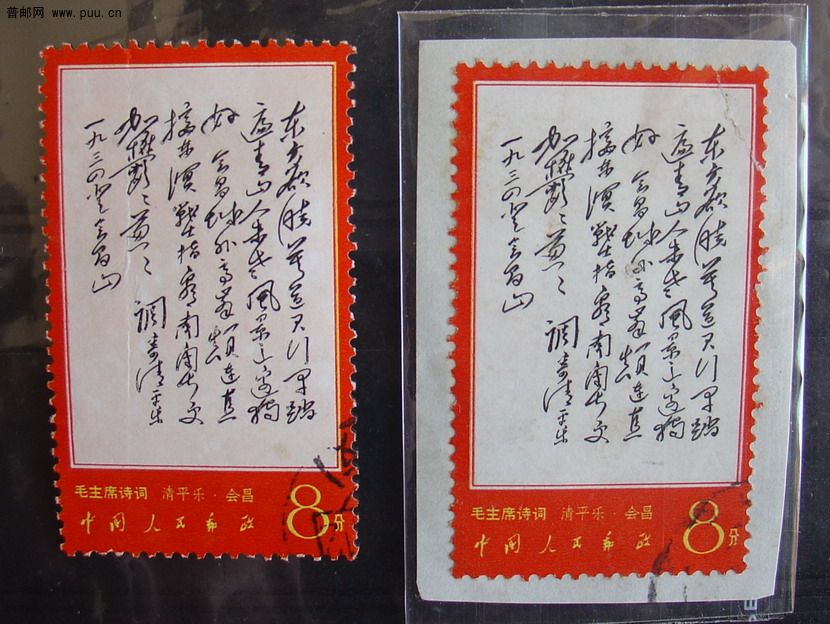 普邮网 www.puu.cn
东方欲晓莫道君行早踏
遍青山人未老風景这边独
好会昌城外高峯颠连直
接东溟战士指看南粤更
加鬱〻葱〻
調寄清平乐
一九三四登会昌山
毛主席诗词 清平乐·会昌
中国人民邮政
8分
东方欲晓莫道君行早踏
遍青山人未老風景这边独
好会昌城外高峯颠连直
接东溟战士指看南粤更
加鬱〻葱〻
調寄清平乐
一九三四登会昌山
毛主席诗词 清平乐·会昌
中国人民邮政
8分